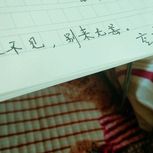 不见，别来无恙。